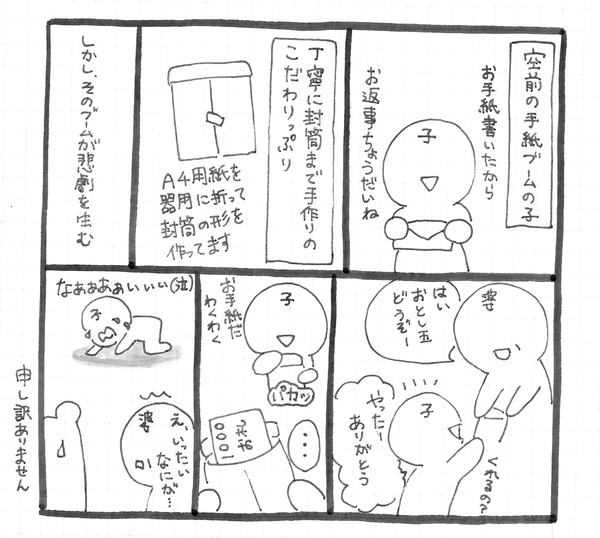 空前の手紙ブームの子
お手紙書いたから
お返事ちょうだいね
子
丁寧に封筒まで手作りの
こだわりっぷり
A4用紙を
器用に折って
封筒の形を
作ってます
しかし、そのブームが悲劇を生む
婆
はい
おとし玉
どうぞー
くれるの?
子
やったー
ありがとう
子
お手紙だ
わくわく
パカッ
1000
・・・
なぁぁぁぁぃぃぃ(泣)
子
婆
え、いったい
なにが…
申し訳ありません